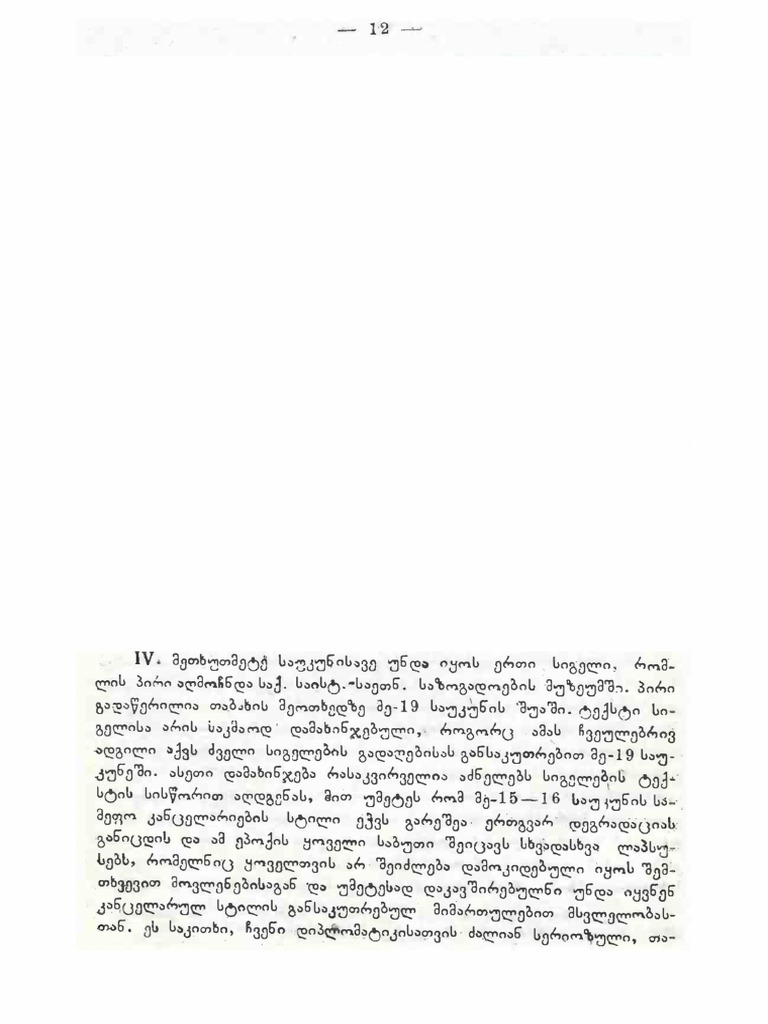 — 12 —
IV. მეთხუთმეტე საუკუნისავე უნდა იყოს ერთი სიგელი, რომ-
ლის პირი აღმოჩნდა საქ. საისტ.-საეთნ. საზოგადოების მუზეუმში. პირი
გადაწერილია თაბახის მეოთხედზე მე-19 საუკუნის შუაში. ტექსტი სი-
გელისა არის საკმაოდ დამახინჯებული, როგორც ამას ჩვეულებრივ
ადგილი აქვს ძველი სიგელების გადაღებისას განსაკუთრებით მე-19 საუ-
კუნეში. ასეთი დამახინჯება რასაკვირველია აძნელებს სიგელების ტექ-
სტის სისწორით აღდგენას, მით უმეტეს რომ მე-15—16 საუკუნის სა-
მეფო კანცელარიების სტილი ეჭვს გარეშეა ერთგვარ დეგრადაციას
განიცდის და ამ ეპოქის ყოველი საბუთი შეიცავს სხვადასხვა ლაპსუ-
სებს, რომელნიც ყოველთვის არ შეიძლება დამოკიდებული იყოს შემ-
თხვევით მოვლენებისაგან და უმეტესად დაკავშირებულნი უნდა იყვნენ
კანცელარულ სტილის განსაკუთრებულ მიმართულებით მსვლელობას-
თან. ეს საკითხი, ჩვენი დიპლომატიკისათვის ძალიან სერიოზული, თა-